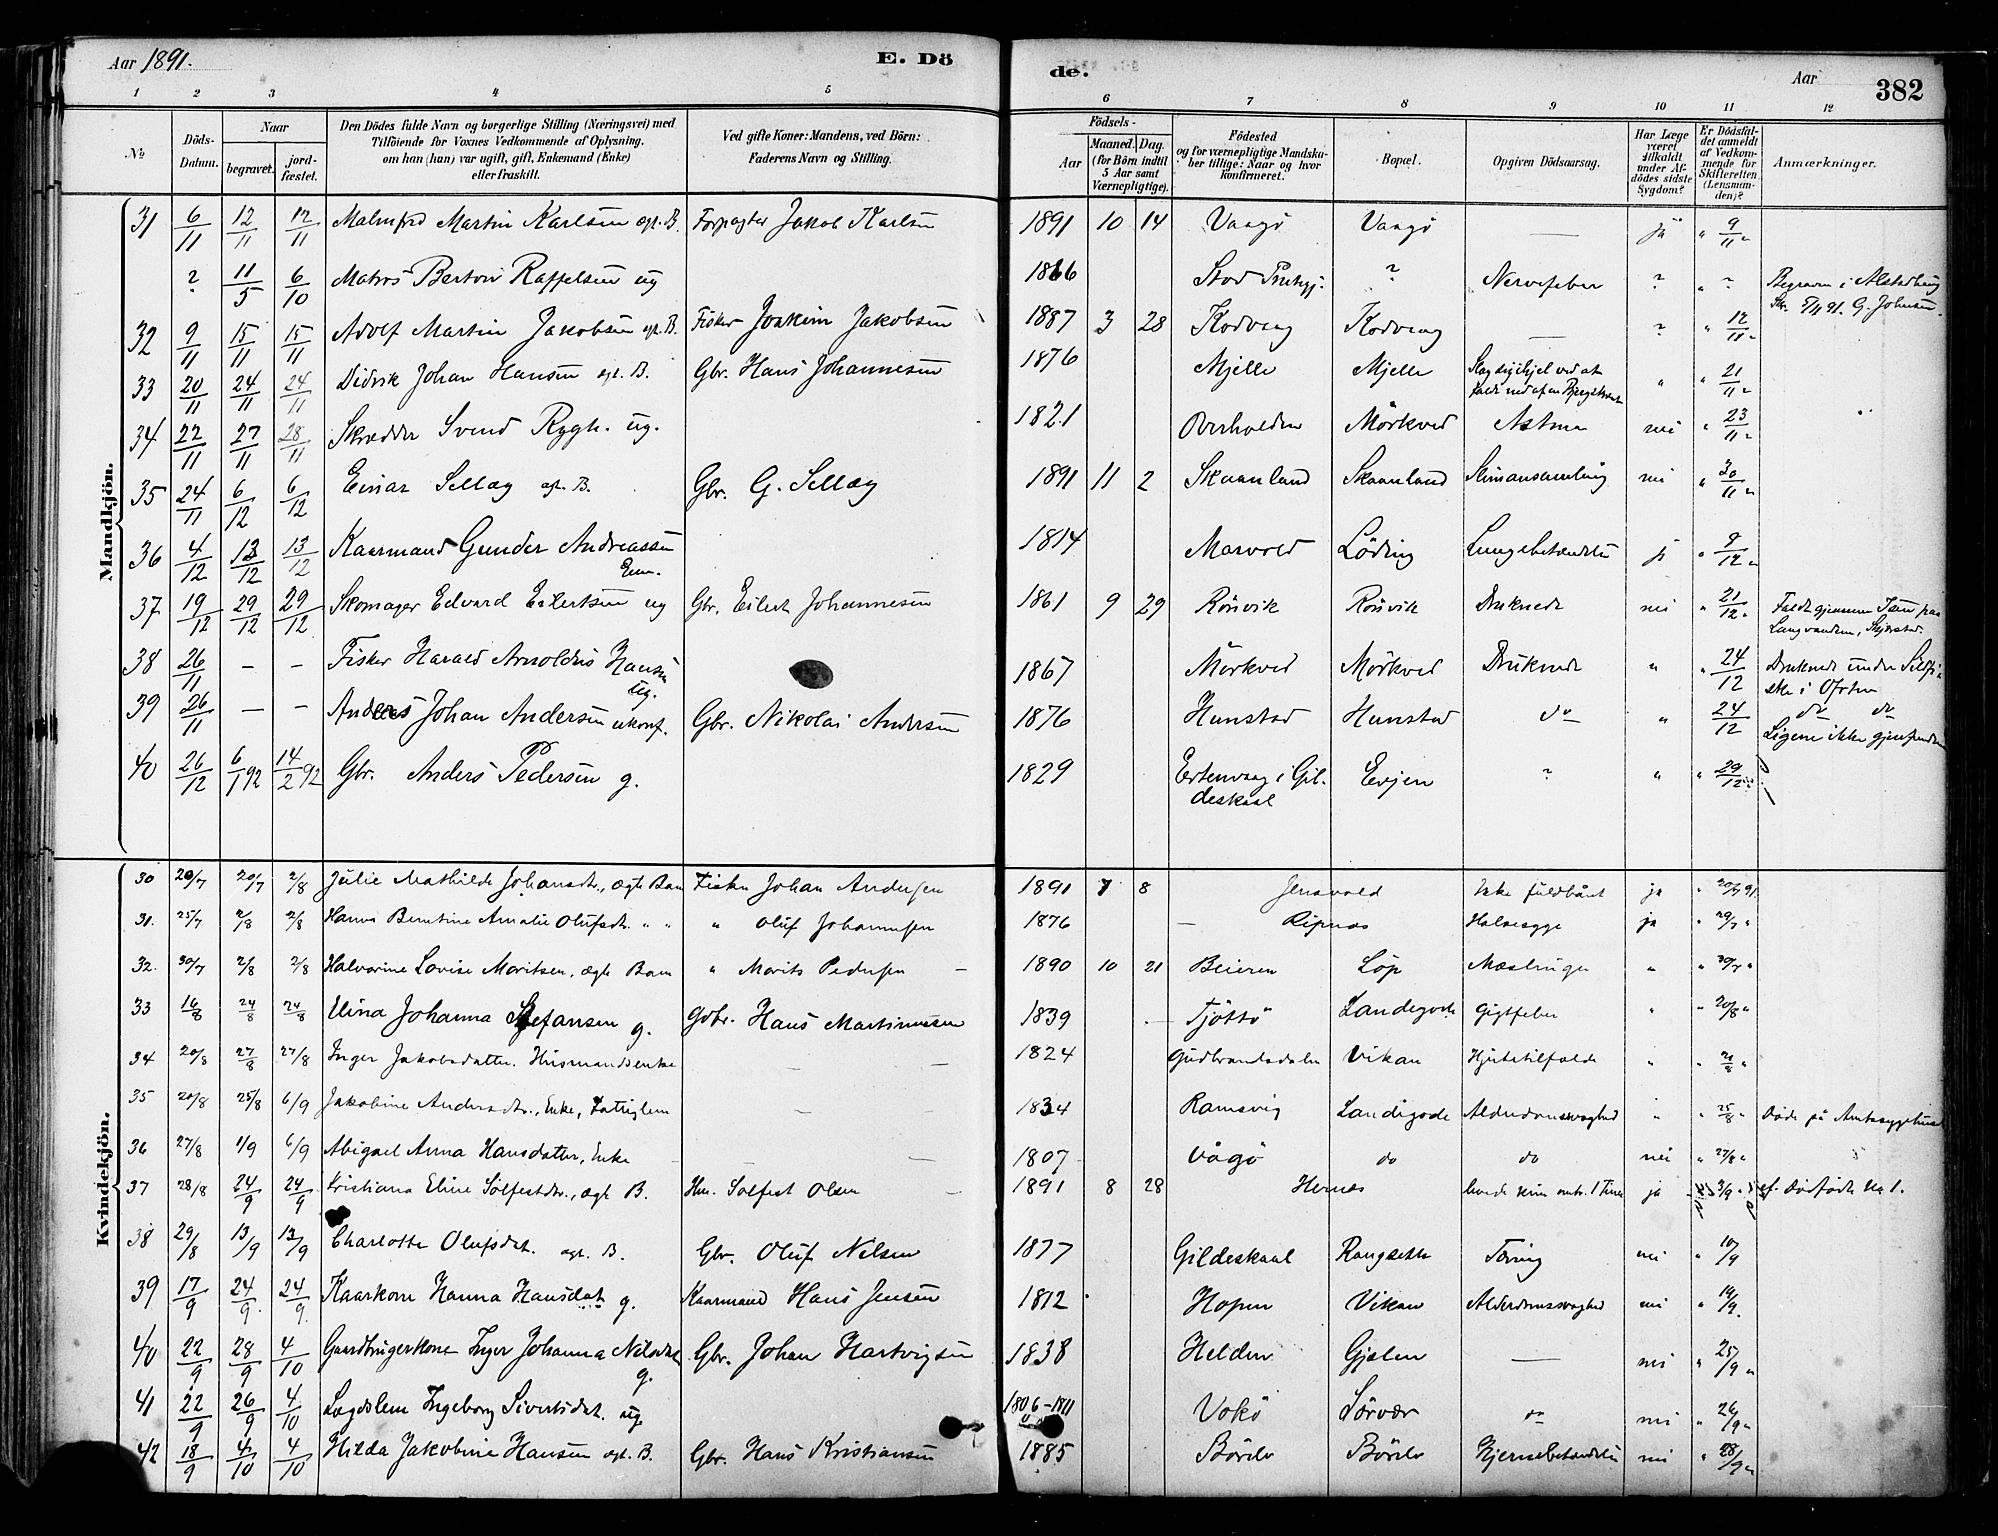 Aar 1891. E. Dö
de. Aar 382
1 2 3 4 5 6 7 8 9 10 11 12
No
Döds-Datum.
Naar
begravet.
jord-fæstet.
Den Dödes fulde Navn og borgerlige Stilling (Næringsvei) med
Tilföiende for Voxnes Vedkommende af Oplysning.
om han (hun) var ugift, gift, Enkemand (Enke)
eller fraskilt.
Ved gifte Koner: Mandens, ved Börn:
Faderens Navn og Stilling.
Födsels-
Aar
Maaned. Dag.
(for Börn indtil
5 Aar samt
Værnepligtige).
Födested
og for værnepligtige Mandska-
ber tillige: Naar og hvor
konfirmeret.
Bopæl.
Opgiven Dödsaarsag.
Har Læge
været
tilkaldt
under Af-
dödes sidste
Sygdom?
Er Dödsfal-
det anmeldt
af Vedkom-
mende for
Skifteretten
(Lensman-
den)?
Anmærkninger.
Mandkjön.
31 6/11 12/11 12/11 Malmfrd Martin Karlsen egt. B. Forpagter Jakob Karlsen 1891 10 14 Vaagø Vaagø — ja " 9/11 "
? 11/5 6/10 Matros Berton Raffelsen ug 1866 Stod Prstgj. ? Nervefeber ? " ? Begraven i
G. Johnsen.
32 9/11 15/11 15/11 Adolf Martin Jakobsen egt. B. Fisker Joakim Jakobsen 1887 3 28 Kodvaag Kodvaag — ? " 12/11 "
33 20/11 24/11 24/11 Didrik Johan Hansen egt. B. Gbr. Hans Johannesen 1876 Mjelle Mjelle Slog sig ihjel ved at
falde ned af en " " 21/11 "
34 22/11 27/11 28/11 Skrædder Svend Rygh. ug. 1821 Overhalden Mörkved Astma nei " 23/11 "
35 24/11 6/12 6/12 Einar Sellæg egt. B. Gbr. G. Sellæg 1891 11 2 Skaanland Skaanland Slimansamling nei " 30/11 "
36 4/12 13/12 13/12 Kaarmand Gunder Andreassen
Enm. 1814 Marvold Löding Lungebetændelse ja " 9/12 "
37 19/12 29/12 29/12 Skomager Edvard Eilertsen ug Gbr. Eilert Johannesen 1861 9 29 Rönvik Rönvik Druknede nei " 21/12 " Faldt gjennem Isen paa
Langvandene, Skjerstad.
38 26/11 — — Fisker Harald Arnoldus Hansen
ug. 1867 Mörkved Mörkved Druknede " " 24/12 Druknede under Sildfi-
ske i Ofoten
39 26/11 — — Anders Johan Andersen ukonf. Gbr. Nikolai Andersen 1876 Hunstad Hunstad do " 24/12 do do
Ligene ikke gjenfundne
40 26/12 6/1 92 14/2 92 Gbr. Anders Pedersen g. 1829 Ertenvaag i Gil-
deskaal Evjen ? " " 29/12 "
Kvindekjön.
30 20/7 20/7 2/8 Julie Mathilde Johansdtr., ægte Barn Fisker Johan Andersen 1891 7 8 Jensvold Ikke fuldbåret ja " 20/7 91.
31. 25/7 2/8 2/8 Hanna Berntine Amalie Olufsdtr. " " " Oluf Johannesen 1876 — Ripnes Halsesyge ja " 29/7 "
32. 30/7 2/8 2/8 Halvarine Lovise Moritsen, ægte Barn " Morits Pedersen — 1890 10 21 Beieren Löp Mæslinger " " 30/7 "
33 16/8 24/8 24/8 Elina Johanna Stefansen g. Gdbr. Hans Martinussen 1839 Tjöttö Landegode Gigtfeber " " 20/8 "
34 20/8 27/8 27/8 Inger Jakobsdatter. Husmandsenke — — 1824 Gudbrandsdalen Vikan Hjertetilfælde " " 21/8 "
35 20/8 25/8 6/9 Jakobine Andersdtr., Enke, Fattiglem — — 1834 Ramsvig Landegode Alderdomssvaghed " " 25/8 " Döde på Amtssygehuset
36 27/8 1/9 6/9 Abigael Anna Hansdatter, Enke — — 1807 Vågö do do nei " 27/8 "
37 28/8 24/9 24/9 Kristiana Eline Sölfestdtr., ægte B. Hm. Solfest Olsen — 1891 8 28 Hernes levede kun omtr. 1 Time ja 3/9 cf. Dödfödte No 1.
38 29/8 13/9 13/9 Charlotte Olufsdat. egt. B. Gbr. Oluf Nelsen 1877 Gildeskaal Rangsetter Tæring nei " 10/9
39 17/9 24/9. 24/9 Kaarkone Hanna Hansdat g. Kaarmand Hans Jensen 1812 Hopen Vikan Alderdomssvaghed nei " 19/9.
40 22/9 28/9 4/10 Gaardbrugerkone Inger Johanna Nilsdat
g. Gbr. Johan Hartvigsen 1838 Helden Gjælen — nei " 25/9 "
41 22/9 26/9 4/10 Lægdslem Ingeborg Sivertsdat. ug. 1806-1811 Vokö Sörvær do nei " 26/9 "
42 18/9 4/10 4/10 Hilda Jakobine Hansen egt. B. Gbr. Hans Kristiansen 1885 Börelv Börelv Hjernebetændelse nei " 28/9 "